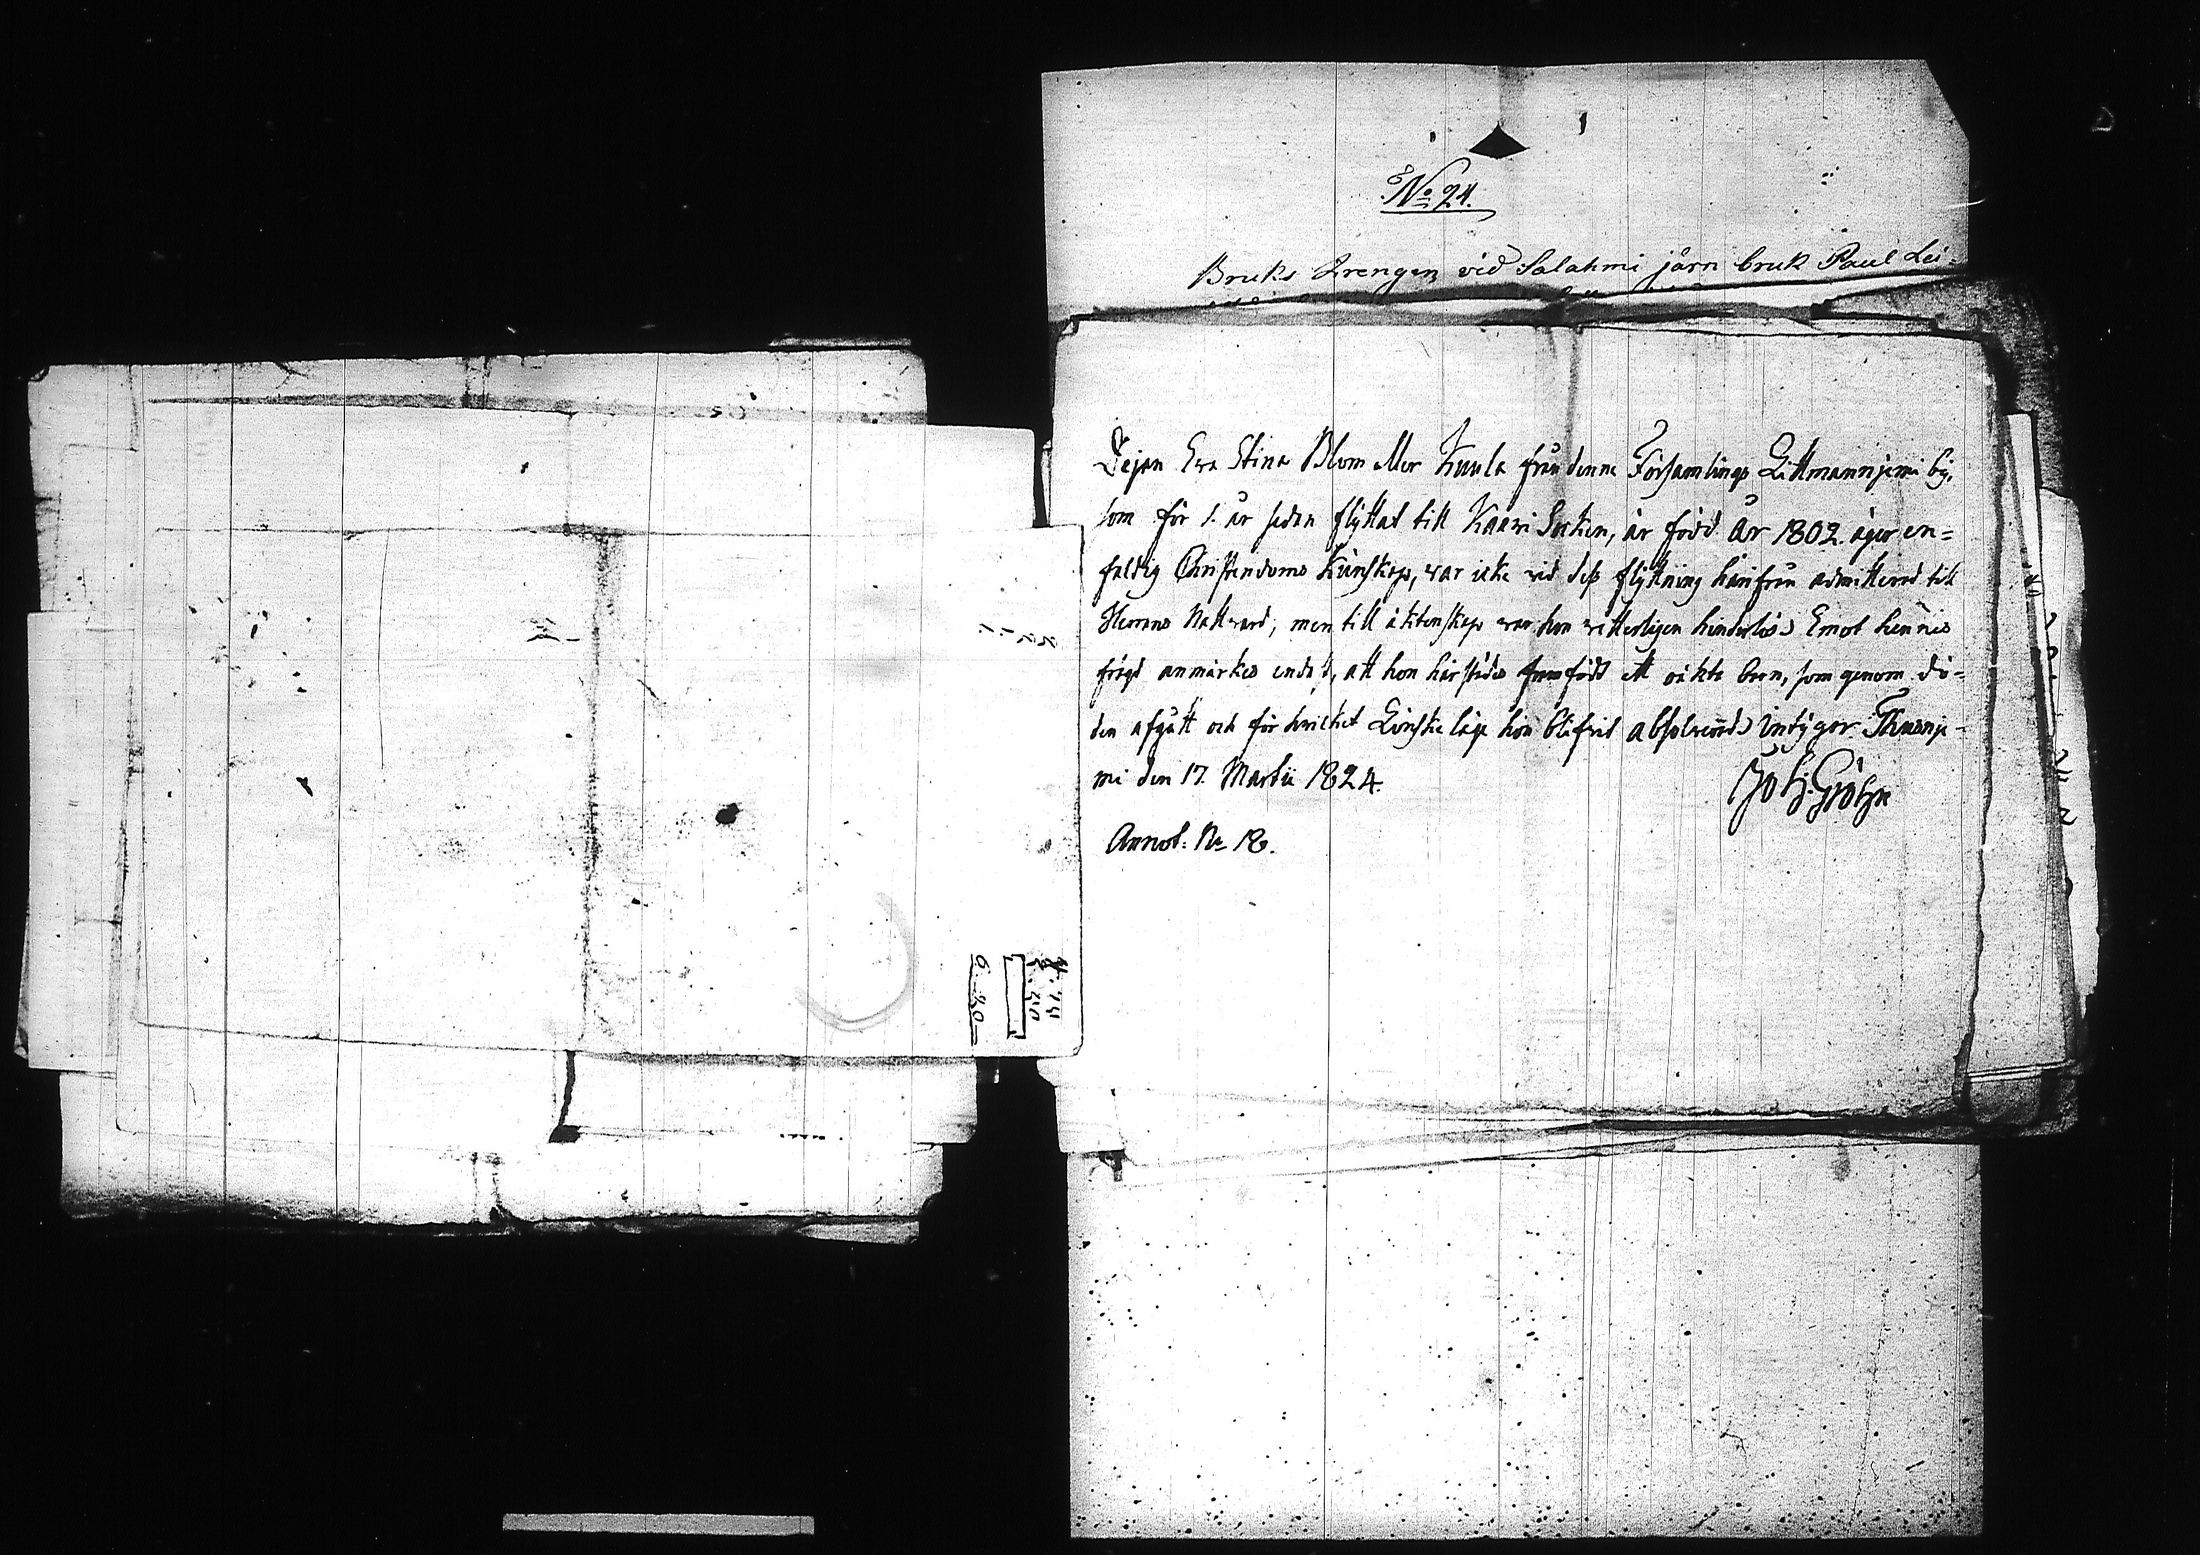 No 24.
Bruks Drengen vid Salahmi järn bruk Paul Lei-
Pejan Ewa Stina Blom eller Kuula från denna Församlings Littmanniemi by,
som för 1. år sedan flyttat till Kaavi Socken, är född År 1802. äger en=
faldig Christendoms Kunskap, war icke wid dess flyttning härifrån admitterad till
Herrans Nattvard; men till äktenskap war hon witterligen hinderlös. Emot hennes
frägd anmärkes endast, att hon härstädes framfödt ett oäkta barn, som genom dö=
den afgått och för hvilket hon blifvit absolverad; intygar
mi den 17. Martii 1824.
Joh: Gröhn
Annot: No 18.